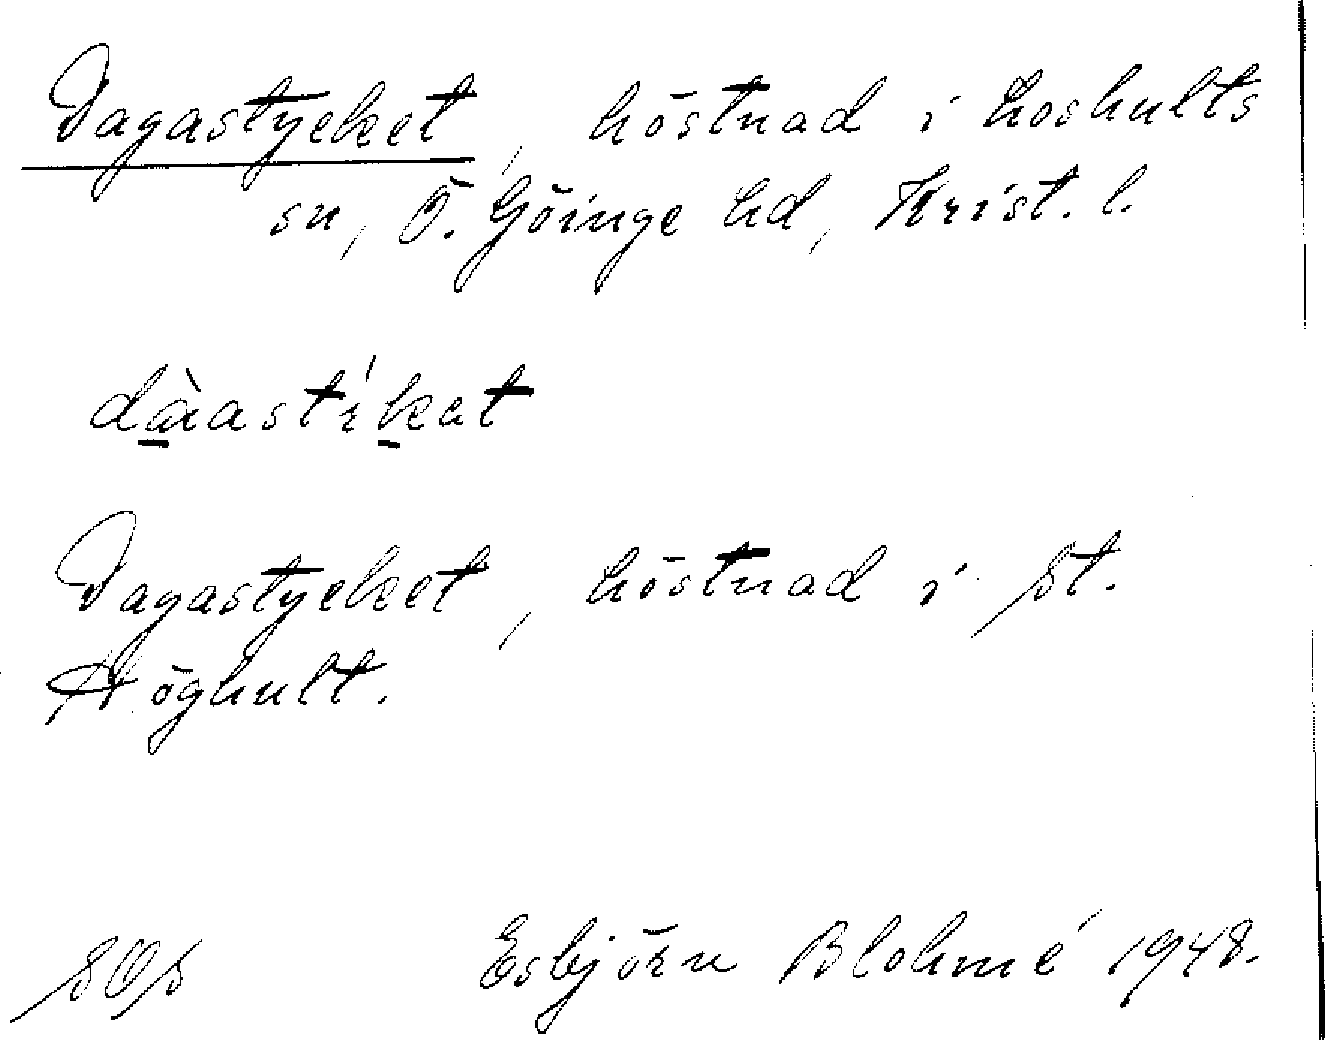 Dagastycket, höstnad i Loshults
sn, Ö. Göinge hd, Krist. l.
dàrastìkat
Dagastycket, höstnad i St.
Höghult.
SOS Esbjörn Blohmé 1948.